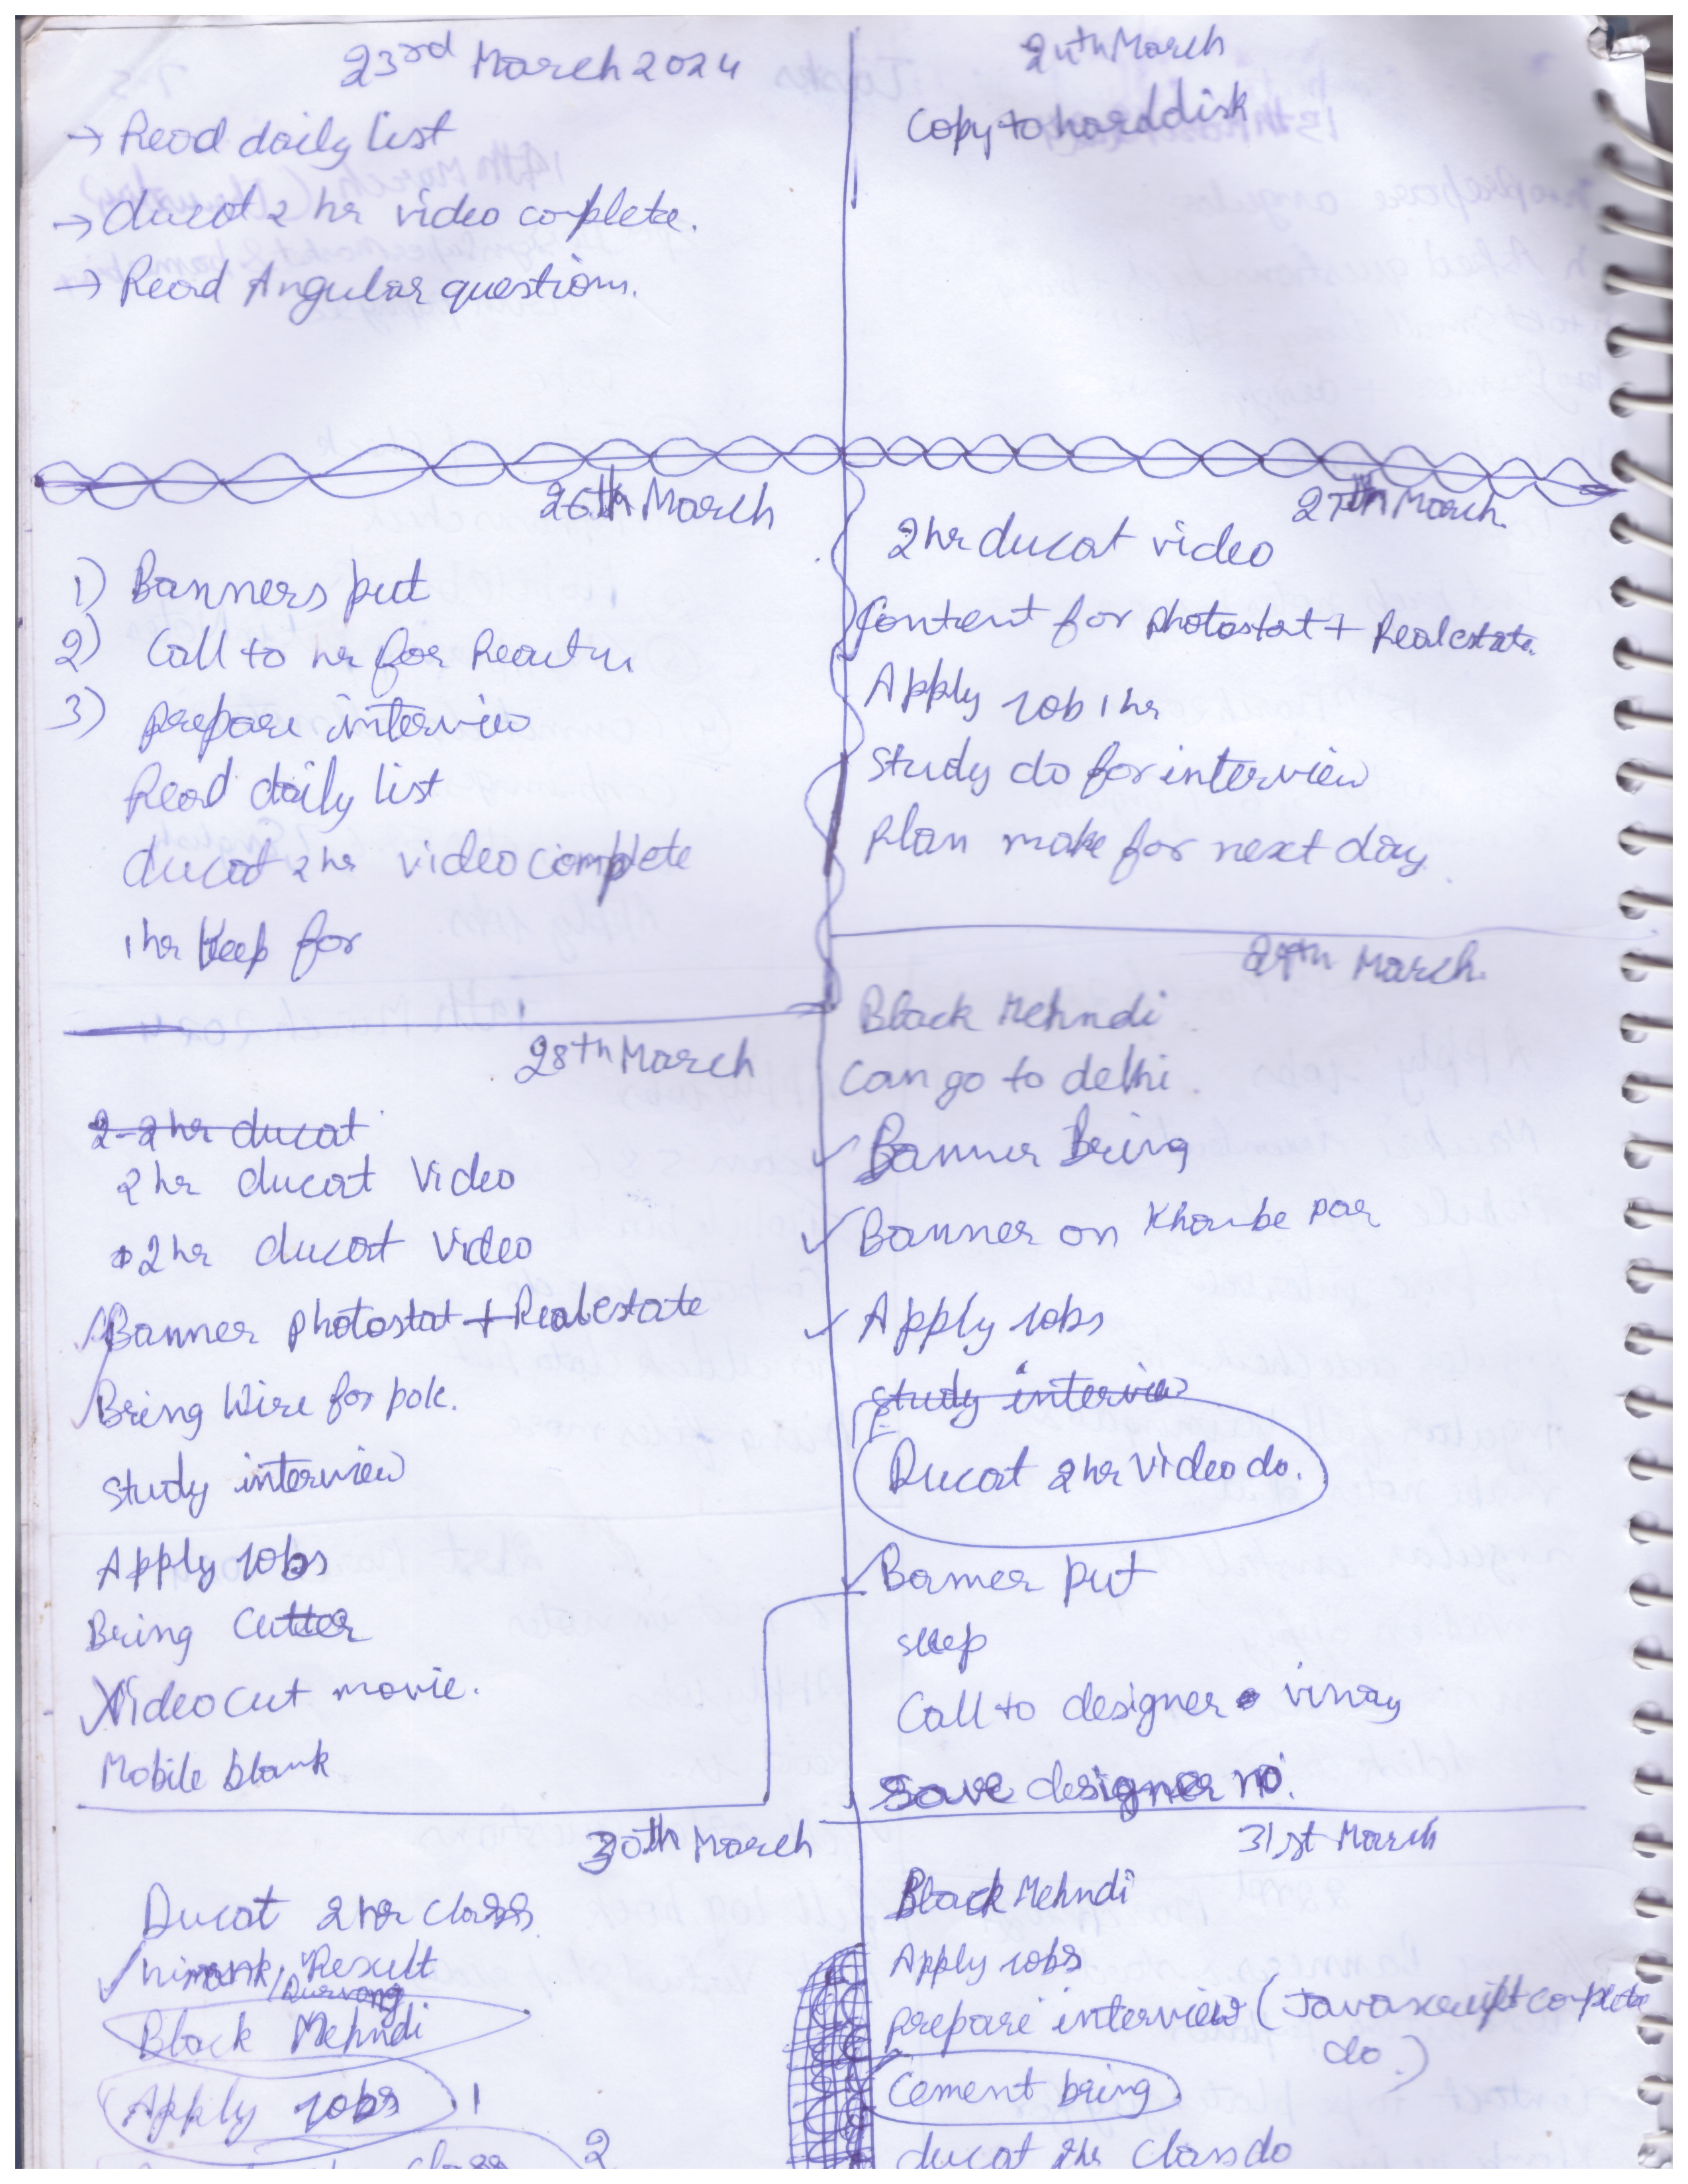 23rd March 2024
→ Read daily list
→ ducat 2 hr video complete.
→ Read Angular questions.
24th March
Copy to harddisk
26th March
1) Banners put
2) Call to hr for
3) prepare interview
Read daily list
ducat 2 hr video complete
1 hr keep for
27th March.
2 hr ducat video
Content for photostat + Realestate.
Apply job 1 hr
Study do for interview
Plan make for next day
28th March
2-2 hr ducat
2 hr ducat Video
2 hr ducat Video
Banner photostat + Realestate
Bring Wire for pole.
Study interview
Apply jobs
Bring Cutter
Video cut movie.
Mobile blank
29th March.
Black Mehndi
Can go to delhi.
Banner Bring
Banner on Khambe par
Apply jobs
Study interview
Ducat 2 hr Video do.
Banner put
sleep
Call to designer vinay
Save designer no.
30th March
Ducat 2 hr class
Result
Black Mehndi
Apply jobs 1
class 2
31st March
Black Mehndi
Apply jobs
prepare interview (Javascript complete
do.)
Cement bring
ducat 2 hr Class do